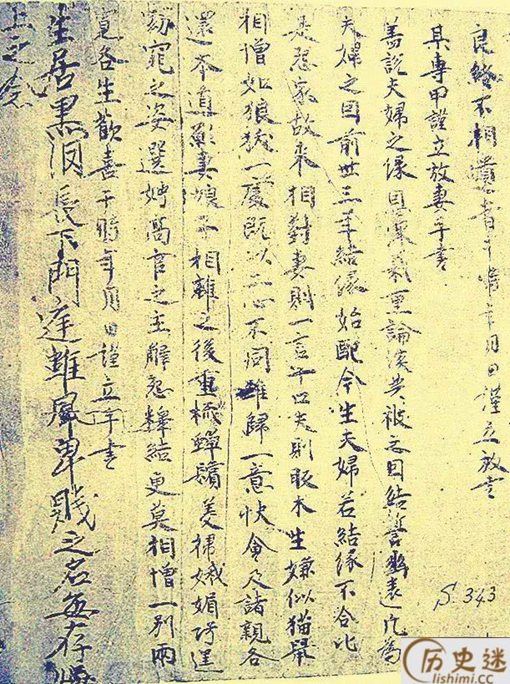 于時年月日謹立放書
某專甲謹立放妻手書
蓋說夫婦之緣恩深義重論談共被之因結誓幽遠凡為
夫婦之因前世三年結緣始配今生夫婦若結緣不合比
是怨家故來相對妻則一言十口夫則販木生嫌似猫鼠
相憎如狼犾一處既以二心不同難歸一意快會及諸親各
還本道願妻娘子相離之後重梳蟬鬢美掃娥媚巧逞
窈窕之姿選娉高官之主解怨釋結更莫相憎一別兩
寬各生歡喜于時年月日謹立手書
生居黑洞長下門庭雖風卑賤之名每存
上之念
S.343
历史迷
lishimi.cc